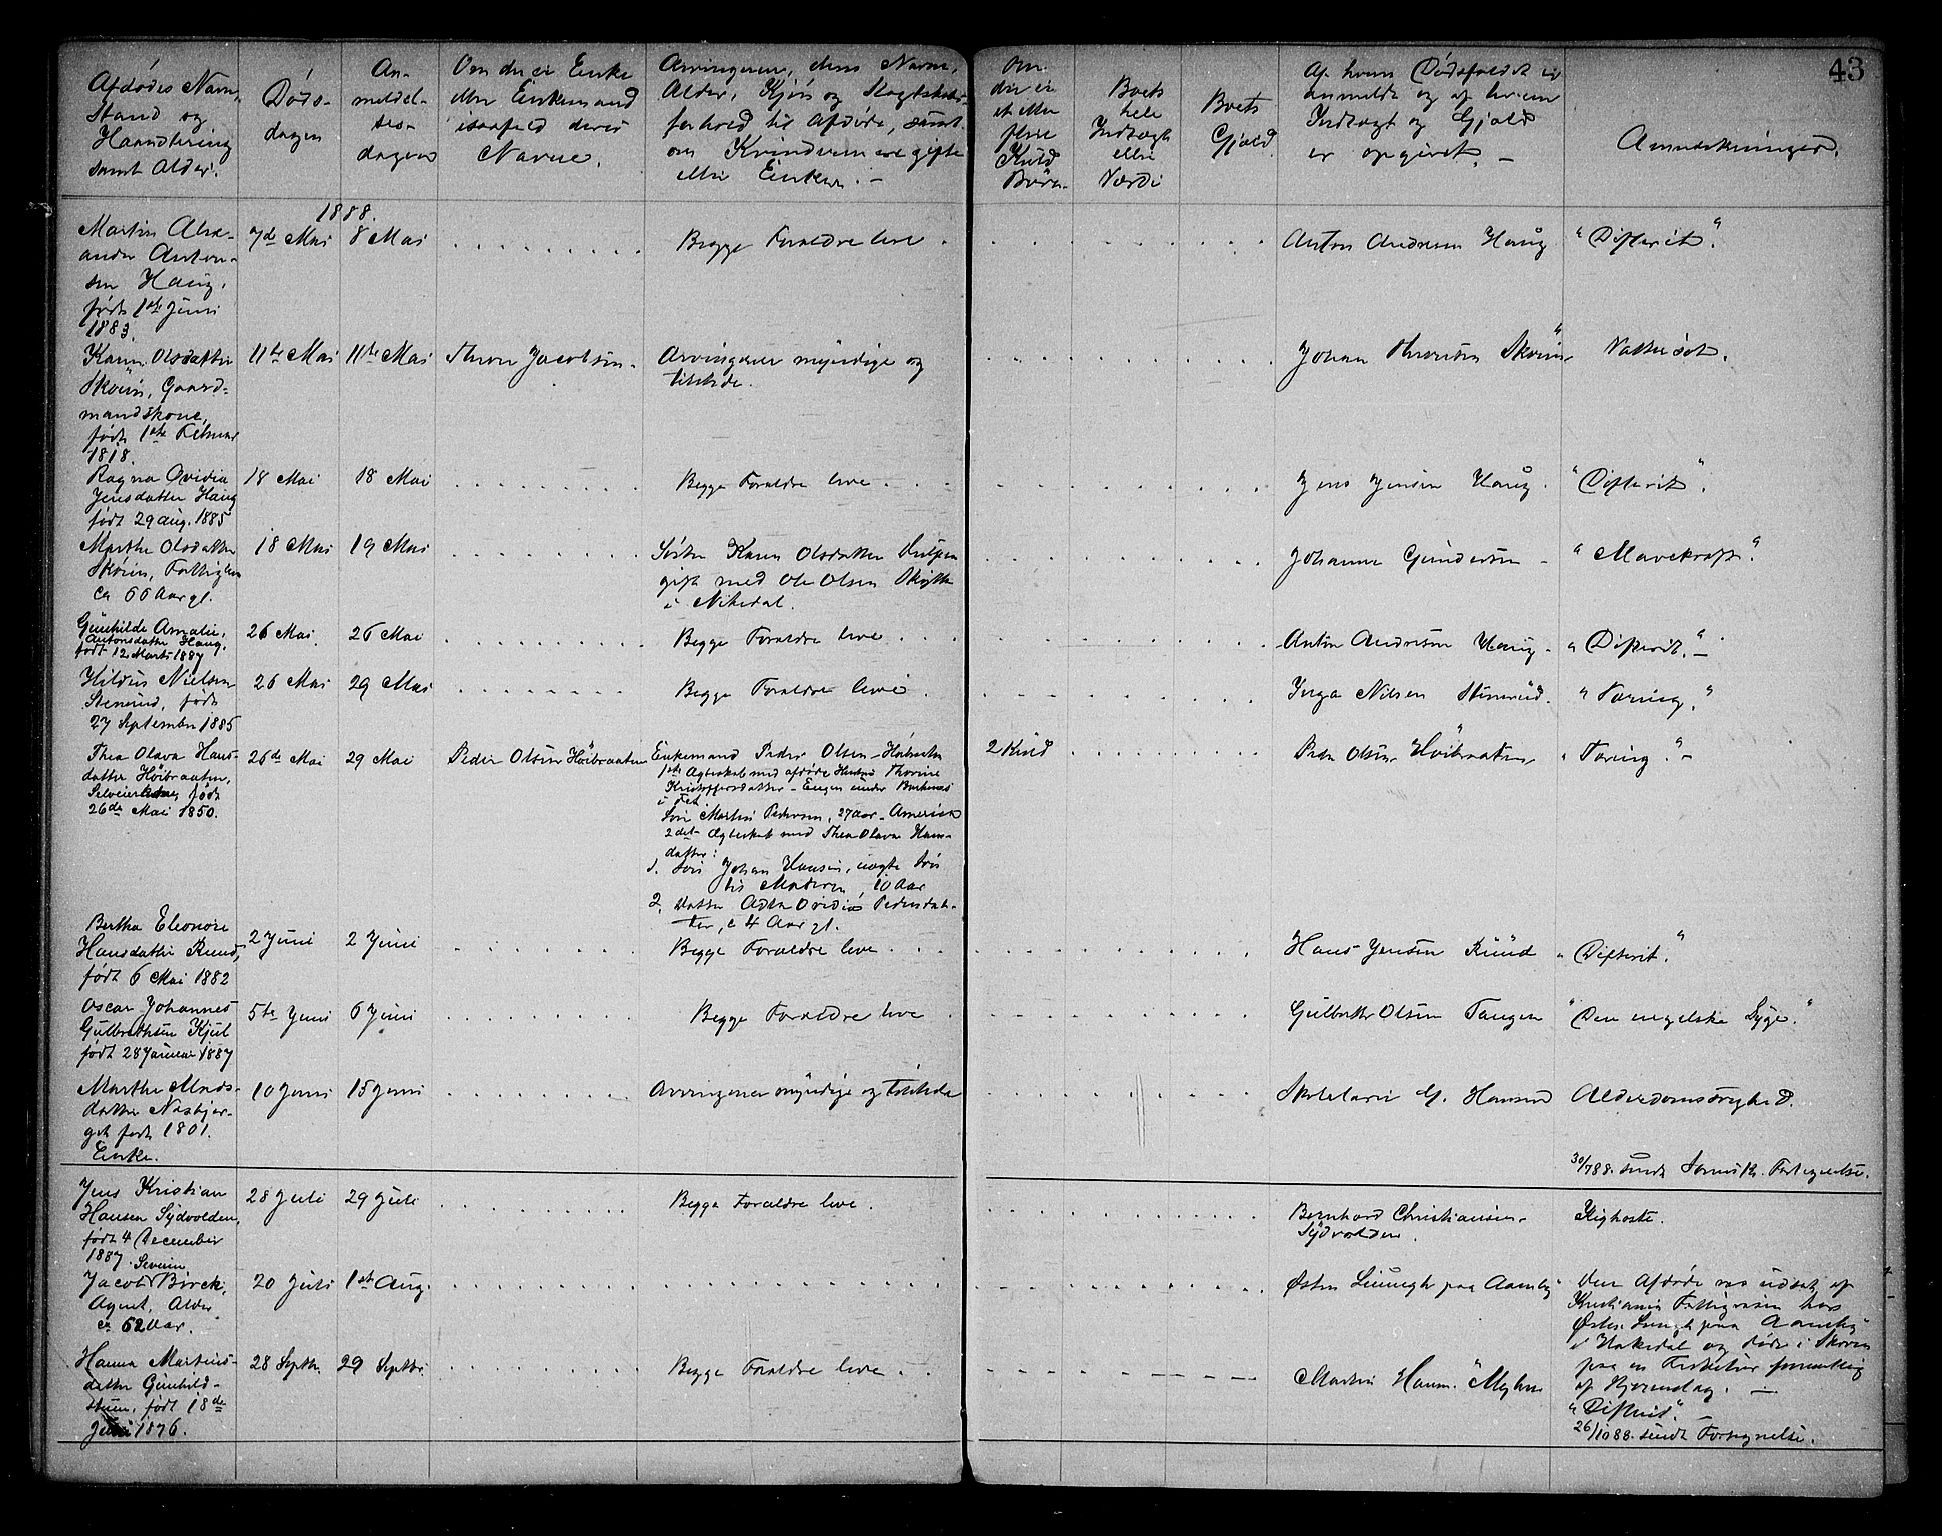 43
Afdødes Navn,
Stand og
Haandtering
samt Alder.
Døds-
dagen
An-
meldel-
ses-
dagen
Om der er Enke
eller Enkemand
isaafald deres
Navne.
Arvingerne, deres Navne,
Alder, Kjøn og Slægtskabs-
forhold til Afdøde, samt
om Kvinderne ere gifte
eller Enker. -
Om
der er
et eller
flere
Kuld
Børn
Boets
hele
Indtægt
eller
Værdi
Boets
Gjæld
Af hvem Dødsfaldet er
anmeldt og af hvem
Indtægt og Gjæld
er opgivet. -
Anmerkninger.
1888.
Martin Alex-
ander Anton-
sen Haug,
født 1ste Juni
1883.
7de Mai
8 Mai
Begge Forældre leve.
Anton Andresen Haug
"Difterit".
Karen Olsdatter
Skøien, Gaard-
mandskone,
født 1ste Februar
1818.
11te Mai
11te Mai
Thron Jacobsen.
Arvingerne myndige og
tilstede.
Johan Thronsen Skøien
Vattersot.
Ragna Ovidia
Jensdatter Haug
født 29 Aug. 1885
18 Mai
18 Mai
Begge Forældre leve.
Jens Jensen Haug.
"Difterit".
Marthe Olsdatter
Skøien, Fattiglem
ca 66 Aar gl.
18 Mai
19 Mai
Søster Karen Olsdatter
gift med Ole Olsen
i Nitedal.
Johannes Gundersen
"Mavekræft".
Gunhilde Amalie,
Antonsdatter Haug,
født 12 Marts 1887
26 Mai
26 Mai
Begge Forældre leve.
Anton Andresen Haug
"Difterit". -
Hildus Nielsen
Stenrud, født
27 September 1885
26 Mai
29 Mai
Begge Forældre leve.
Inga Nilsen Stenrud.
"Tæring".
Thea Olava Hans-
datter Høibraaten,
Selveierkone, født
26de Mai 1850.
26de Mai
29 Mai
Peder Olsen Høibraaten
Enkemand Peder Olsen Høibraaten
1ste Ægteskab med afdøde Hustru Thorine
Kristoffersdatter - Engen under
i Fet
Søn Martin Pedersen, 27 aar - Amerika
2det Ægteskab med Thea Olava Hans-
datter:
1. Søn Johan Hansen, uægte Søn
til Moderen, 10 Aar
2. Datter Agta Ovidia Pedersdat-
ter, c 4 Aar gl.
2 Kuld
Peder Olsen Høibraaten
"Tæring". -
Bertha Eleonore
Hansdatter Ruud,
født 6 Mai 1882
2 Juni
2 Juni
Begge Forældre leve
Hans Jensen Ruud
"Difterit".
Oscar Johannes
Gulbrandsen Kjul
født 28 Januar 1887
5te Juni
6 Juni
Begge Forældre leve
Gulbrand Olsen Tangen
"Den engelske Syge".
Marthe Mads-
datter Næsbjer-
get født 1801.
Enke.
10 Juni
15 Juni
Arvingerne myndige og tilstede
G. Hansen
Alderdomssvaghed.
30/7 88. sendt Fortegnelse.
Jens Kristian
Hansen Sydvolden,
født 4 December
1887.
28 Juli
29 Juli
Begge Forældre leve.
Bernhard Christiansen
Sydvolden.
Kighoste.
Severin
Jacob Birck,
Agent, Alder
ca 62 Aar.
20 Juli
1ste Aug.
Østen paa Aamby
Den Afdøde var udsat af
Kristiania Fattigvæsen hos
Østen paa Aamby
i Hakedal og døde i Skoven
paa en Fisketur formentlig
af Hjerneslag. -
Hanna Martins-
datter Gunhild-
stuen, født 18de
Juni 1876.
28 Septbr.
29 Septbr.
Begge Forældre leve.
Martin Hansen
"Difterit". -
26/10 88. sendt Fortegnelse.